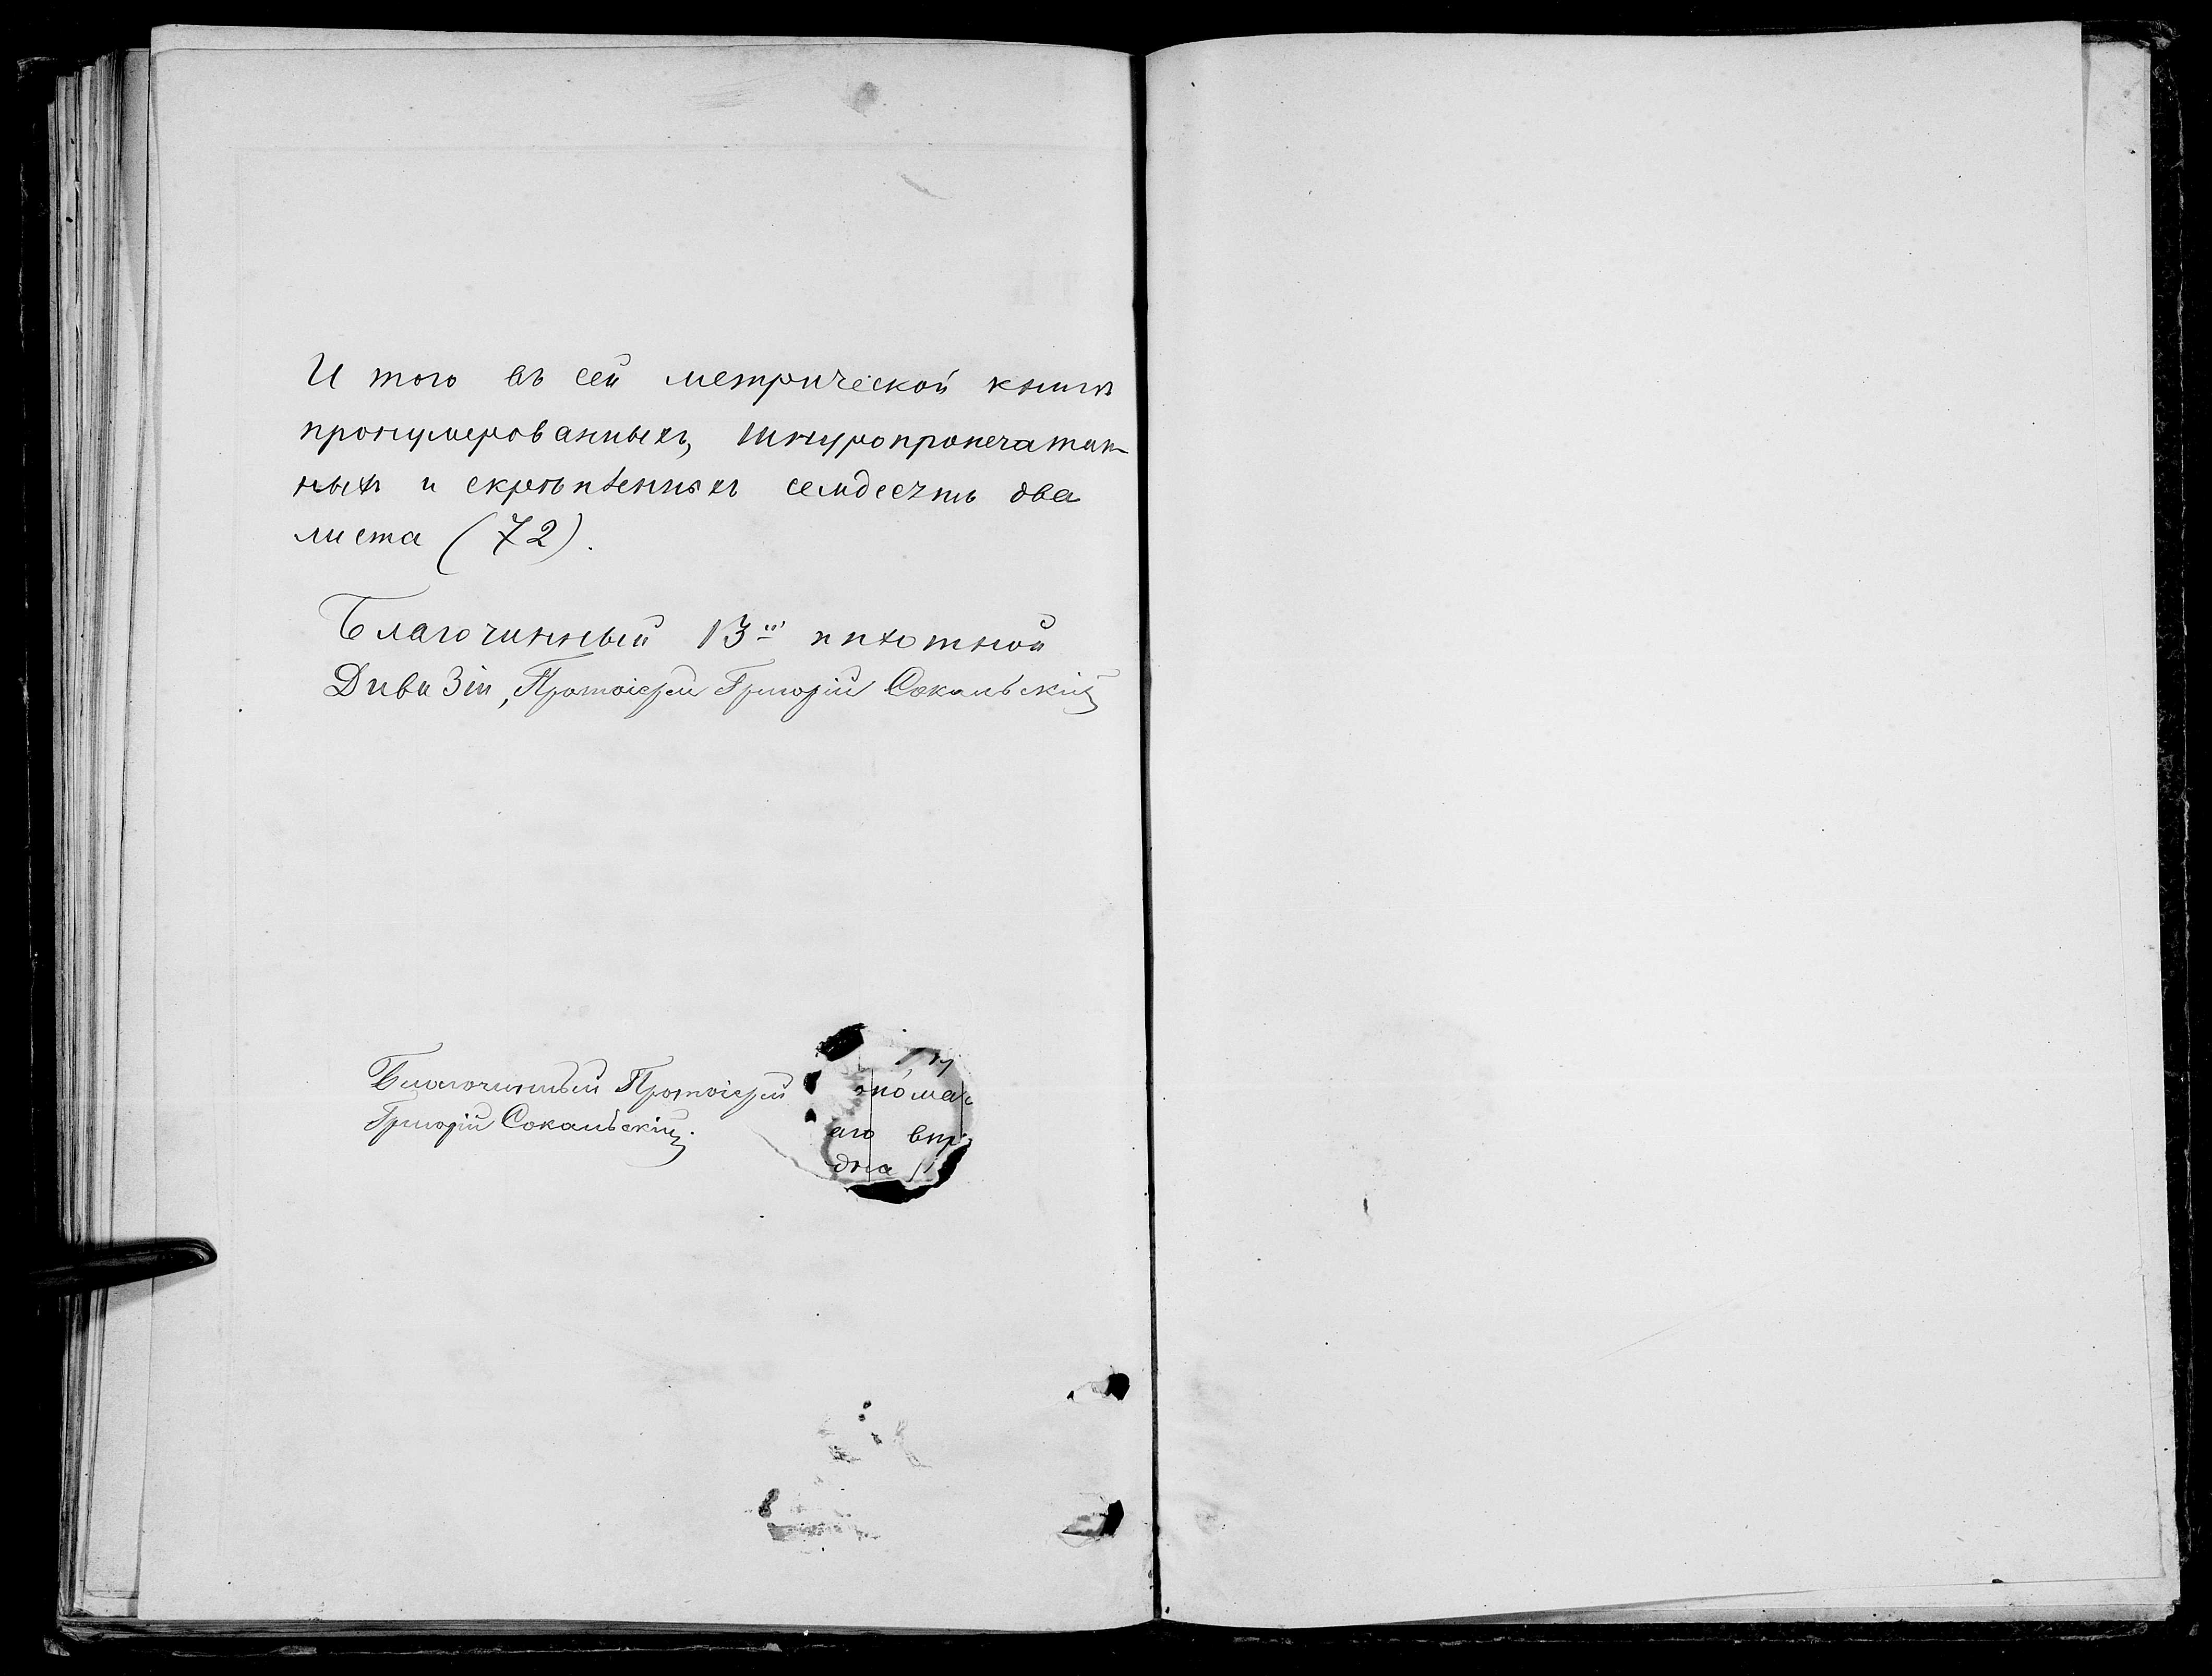 И того въ сей метрической книгѣ
пронумерованныхъ, шнуропропечатан-
ныхъ и скрѣпленныхъ семдесять два
листа (72).
Благочинный 13й пѣхотной
Дивизіи, Протоіерей Григорій Сокальскій
Благочинный Протоіерей
Григорій Сокальскій.
аго
дна